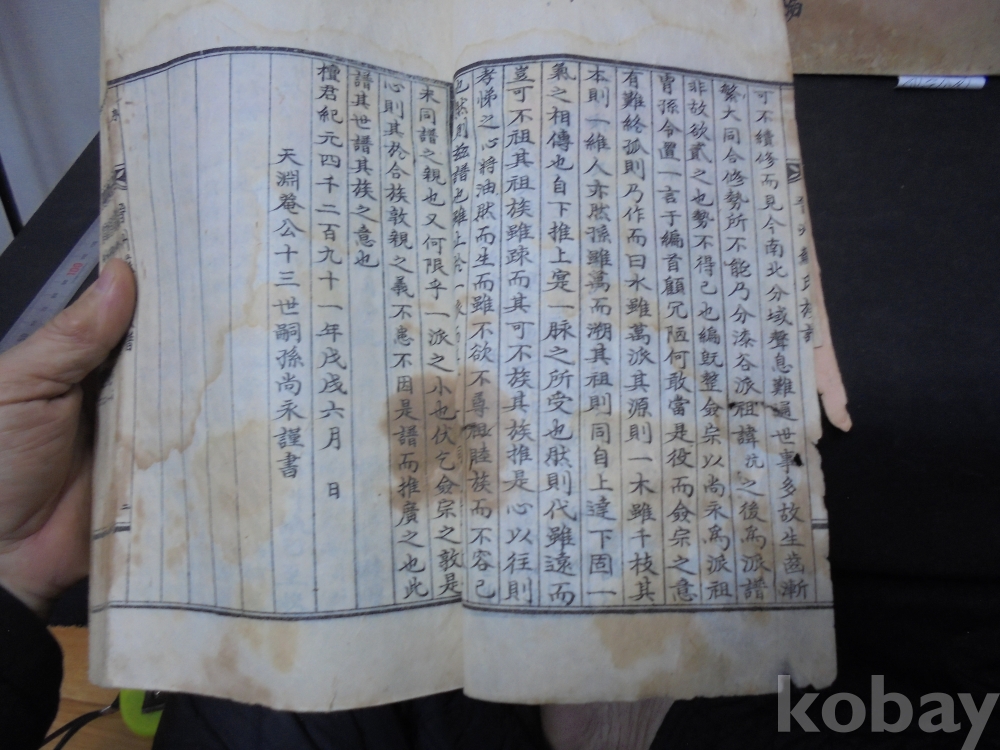 可不續修而見今南北分域聲息難通世事多故生齒漸
繁大同合修勢所不能乃分漆谷派祖諱沆之後爲派譜
非故欲貳之也勢不得已也編旣整僉宗以尚永爲派祖
冑孫令置一言于編首顧冗陋何敢當是役而僉宗之意
有難終孤則乃作而曰水雖萬派其源則一木雖千枝其
本則一維人亦然孫雖萬而溯其祖則同自上達下固一
氣之相傳也自下推上寔一脉之所受也然則代雖遠而
豈可不祖其祖族雖疎而其可不族其族推是心以往則
孝悌之心將油然而生而雖不欲不尊祖睦族而不容已
也然則玆譜也雖止於一
未同譜之親也又何限乎一派之小也伏乞僉宗之敦是
心則其於合族敦親之義不患不因是譜而推廣之也此
譜其世譜其族之意也
檀君紀元四千二百九十一年戊戌六月 日
天淵菴公十三世嗣孫尚永謹書
序
二
kobay